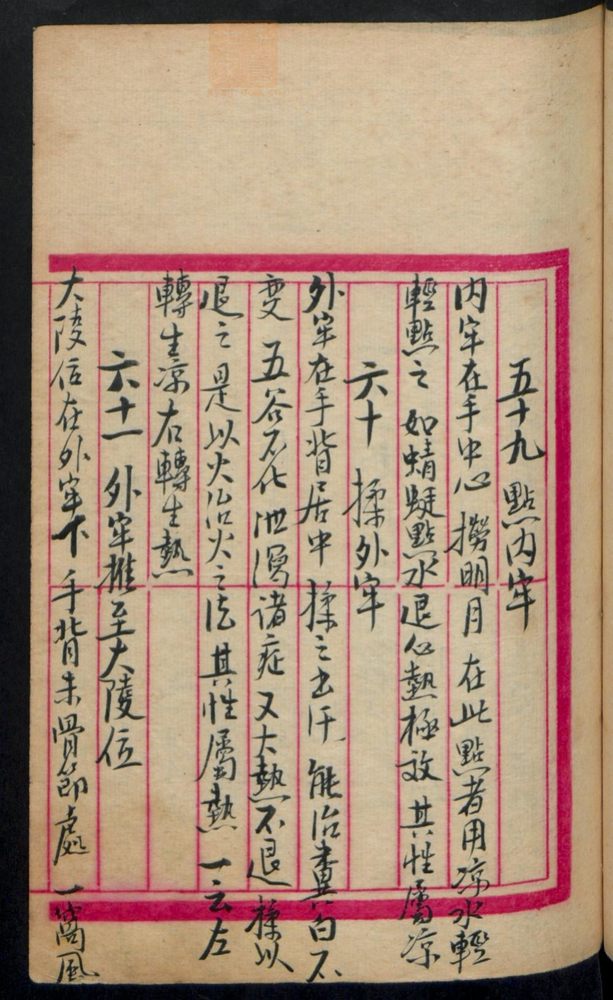 五十九 點內牢
內牢在手中心 撈明月 在此 點者用凉水輕
輕點之 如蜻蜓點水 退心熱極效 其性屬凉
六十 揉外牢
外牢在手背居中 揉之出汗 能治糞白不
变 五谷不化 泄瀉諸症 又大熱不退 揉以
退之 是以火治火之法 其性屬熱 一云左
轉生凉 右轉生熱
六十一 外牢推至大陵位
大陵位在外牢下 手背未骨節處 一窩風